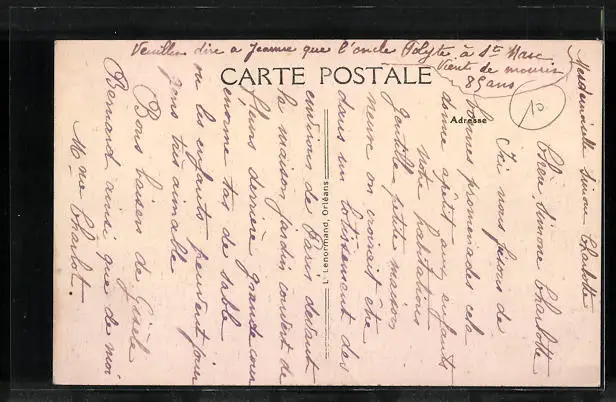 Veuillez dire a Jeanne que l'oncle Polyte à St Marc
Vient de mourir
85 ans
CARTE POSTALE
Adresse
L. Lenormand, Orléans
Mademoiselle Simone Charlotte
Chère Simone Charlotte
Ici nous faisons de
bonnes promenades cela
donne apétit aux enfants
notre habitations
Gentille petite maison
neuve on croirait être
dans un lotissement des
environs de Paris devant
la maison jardin couvert de
fleurs derrière grande cour
énorme tas de sable
ou les enfants peuvent jouer
Gens très aimable
Bons baisers de Gisèle
Bernard ainsi que de moi
Mme Charlot.